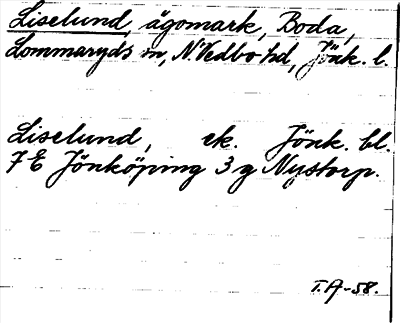 Liselund, ägomark, Boda,
Lommaryds sn, N. Vedbo hd, Jönk. l.
Liselund, ek. Jönk. bl.
7 E Jönköping 3 g Nystorp.
T.A-58.